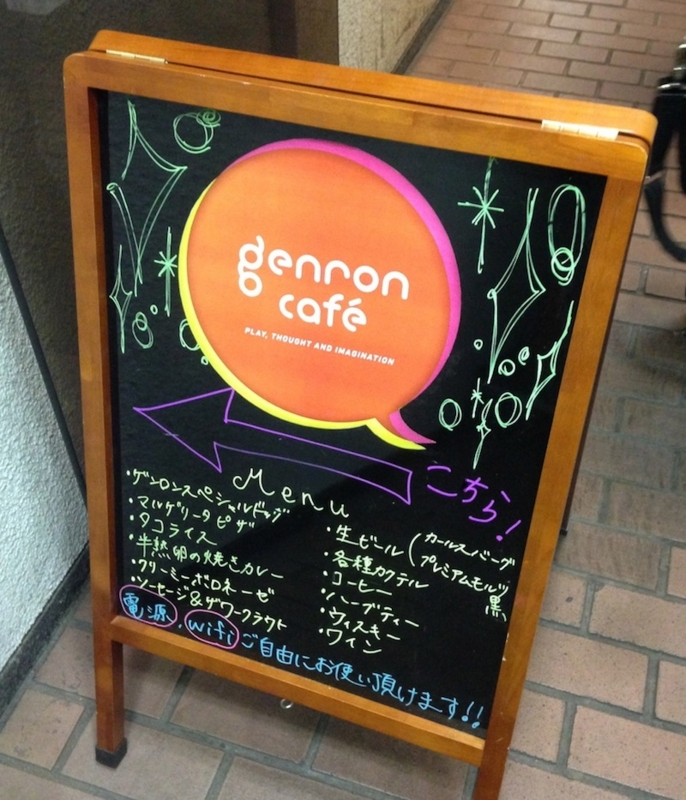 genron
café
PLAY, THOUGHT AND IMAGINATION
こちら!
Menu
・ゲンロンスペシャルドッグ
・マルゲリータピザ
・タコライス
・半熟卵の焼きカレー
・クリーミーボロネーゼ
・ソーセージ&ザワークラウト
・生ビール(カールスバーグ
プレミアムモルツ
黒
・各種カクテル
・コーヒー
・ハーブティー
・ウィスキー
・ワイン
電源、wifiご自由にお使い頂けます!!